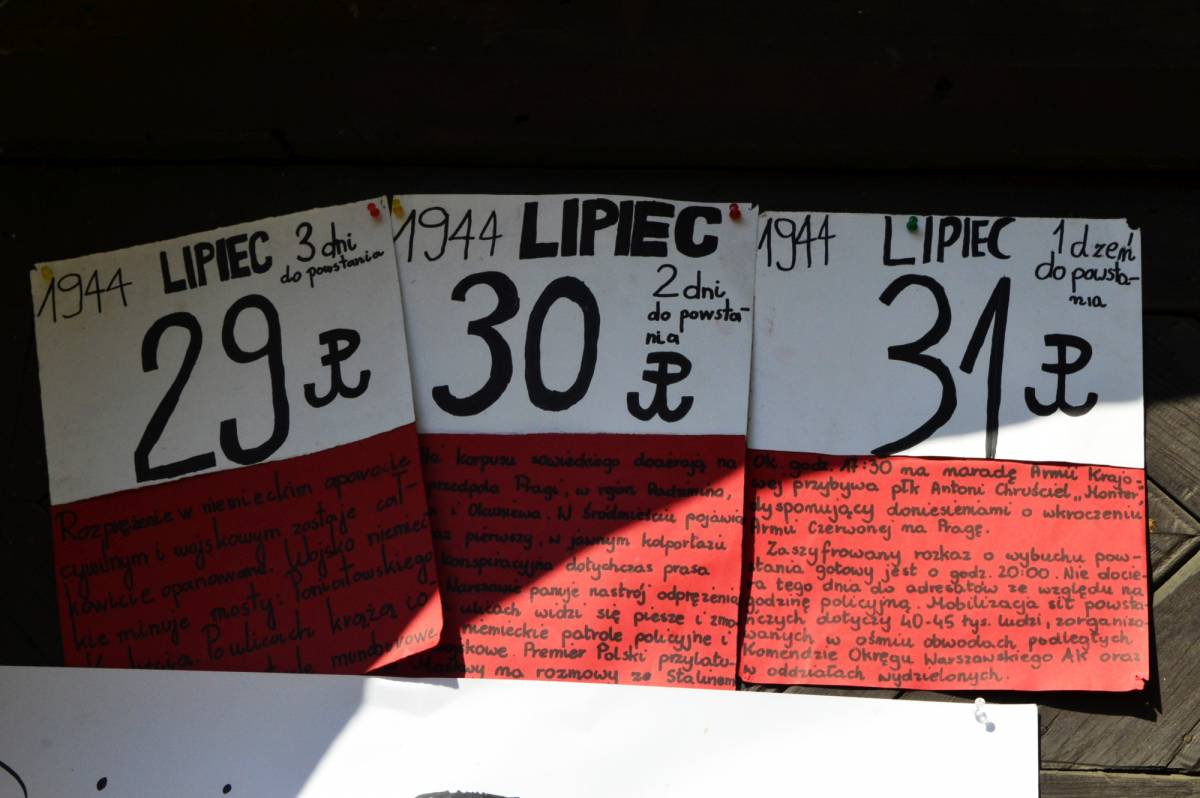 1944 LIPIEC 3 dni
do powstania
29
Rozprężenie w niemieckim aparacie
cywilnym i wojskowym zostaje cał-
kowicie opanowane. Wojsko niemiec
kie minuje mosty: Poniatowskiego
Po ulicach krążą
mundurowe
1944 LIPIEC
30
2 dni
do powsta-
nia
korpusu sowieckiego docierają na
przedpola Pragi, w rejon Radzymina,
i Okuniewa. W Śródmieściu pojawia
raz pierwszy, w jawnym kolportażu
konspiracyjna dotychczas prasa
Warszawie panuje nastrój odprężenia
ulicach widzi się piesze i zmo
niemieckie patrole policyjne i
wojskowe. Premier Polski przylatu-
Moskwy ma rozmowy ze Stalinem
1944 LIPIEC
31
1 dzeń
do powsta-
nia
Ok. godz. 17:30 na naradę Armii Krajo-
wej przybywa płk Antoni Chruściel „Monter"
dysponujący doniesieniami o wkroczeniu
Armii Czerwonej na Pragę.
Zaszyfrowany rozkaz o wybuchu pow-
stania gotowy jest o godz. 20:00. Nie docie-
ra tego dnia do adresatów ze względu na
godzinę policyjną. Mobilizacja sił powsta-
nczych dotyczy 40-45 tyś. ludzi, zorganizo-
wanych w ośmiu obwodach podległych
Komendzie Okręgu Warszawskiego AK oraz
w oddziałach wydzielonych.